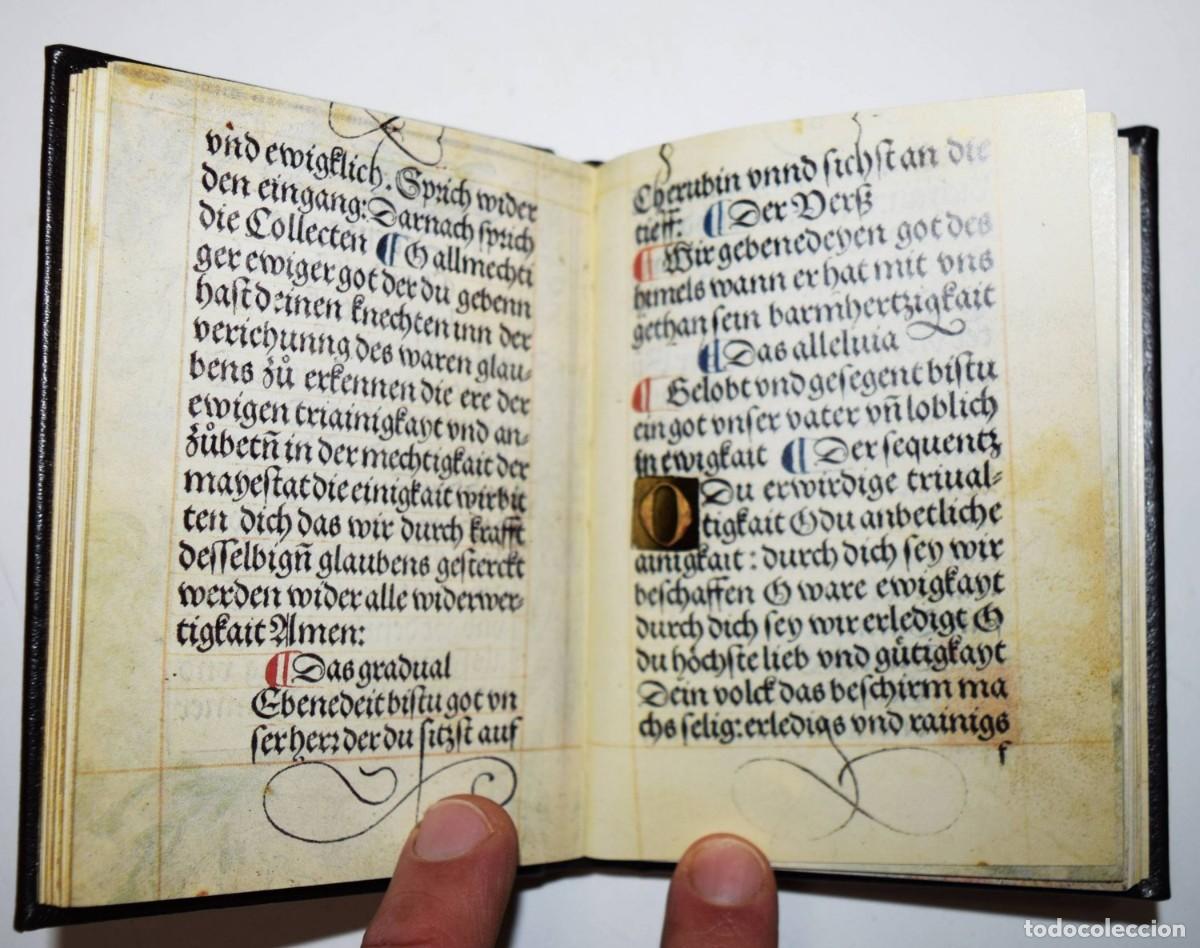 vnd ewigklich. Sprich wider
den eingang: Darnach sprich
die Collecten ¶ O allmechti
ger ewiger got der du gebenn
hast deinen knechten inn der
verichunng des waren glau-
bens zů erkennen die ere der
ewigen triainigkayt vnd an-
zůbetn̄ in der mechtigkait der
mayestat die einigkait wir bit
ten dich das wir durch krafft
desselbign̄ glaubens gesterckt
werden wider alle widerwer-
tigkait Amen:
¶ Das gradual
Ebenedeit bistu got vn
ser herr der du sitzst auf
Cherubin vnnd sichst an die
tieff: ¶ Der Verß
¶ Wir gebenedeyen got des
himels wann er hat mit vns
gethan sein barmhertzigkait
¶ Das alleluia
¶ Gelobt vnd gesegent bistu
ein got vnser vater vn̄ loblich
in ewigkait ¶ Der sequentz
O Du erwirdige triual-
tigkait O du anbetliche
ainigkait: durch dich sey wir
beschaffen O ware ewigkayt
durch dich sey wir erledigt O
du höchste lieb vnd gütigkayt
Dein volck das beschirm ma
chs selig: erledigs vnd rainigs
f
todocoleccion